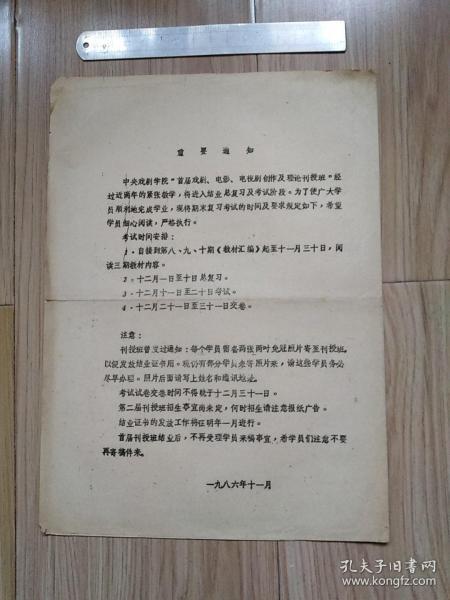 重要通知
中央戏剧学院“首届戏剧、电影、电视剧创作及理论刊授班”经
过近两年的紧张教学，将进入结业总复习及考试阶段。为了使广大学
员顺利地完成学业，现将期末复习考试的时间及要求规定如下，希望
学员细心阅读，严格执行。
考试时间安排：
1·自接到第八、九、十期《教材汇编》起至十一月三十日，阅
读三期教材内容。
2·十二月一日至十日总复习。
3·十二月十一日至二十日考试。
4·十二月二十一日至三十一日交卷。
注意：
刊授班曾发过通知：每个学员需备两张两吋免冠照片寄至刊授班，
以便发放结业证书用。现仍有部分学员未寄照片来，请这些学员务必
尽早办理。照片后面请写上姓名和通讯地址。
考试试卷交卷时间不得晚于十二月三十一日。
第二届刊授班招生事宜尚未定，何时招生请注意报纸广告。
结业证书的发放工作将在明年一月进行。
首届刊授班结业后，不再受理学员来稿事宜，希学员们注意不要
再寄稿件来。
一九八六年十一月
孔夫子旧书网
www.kongfz.com